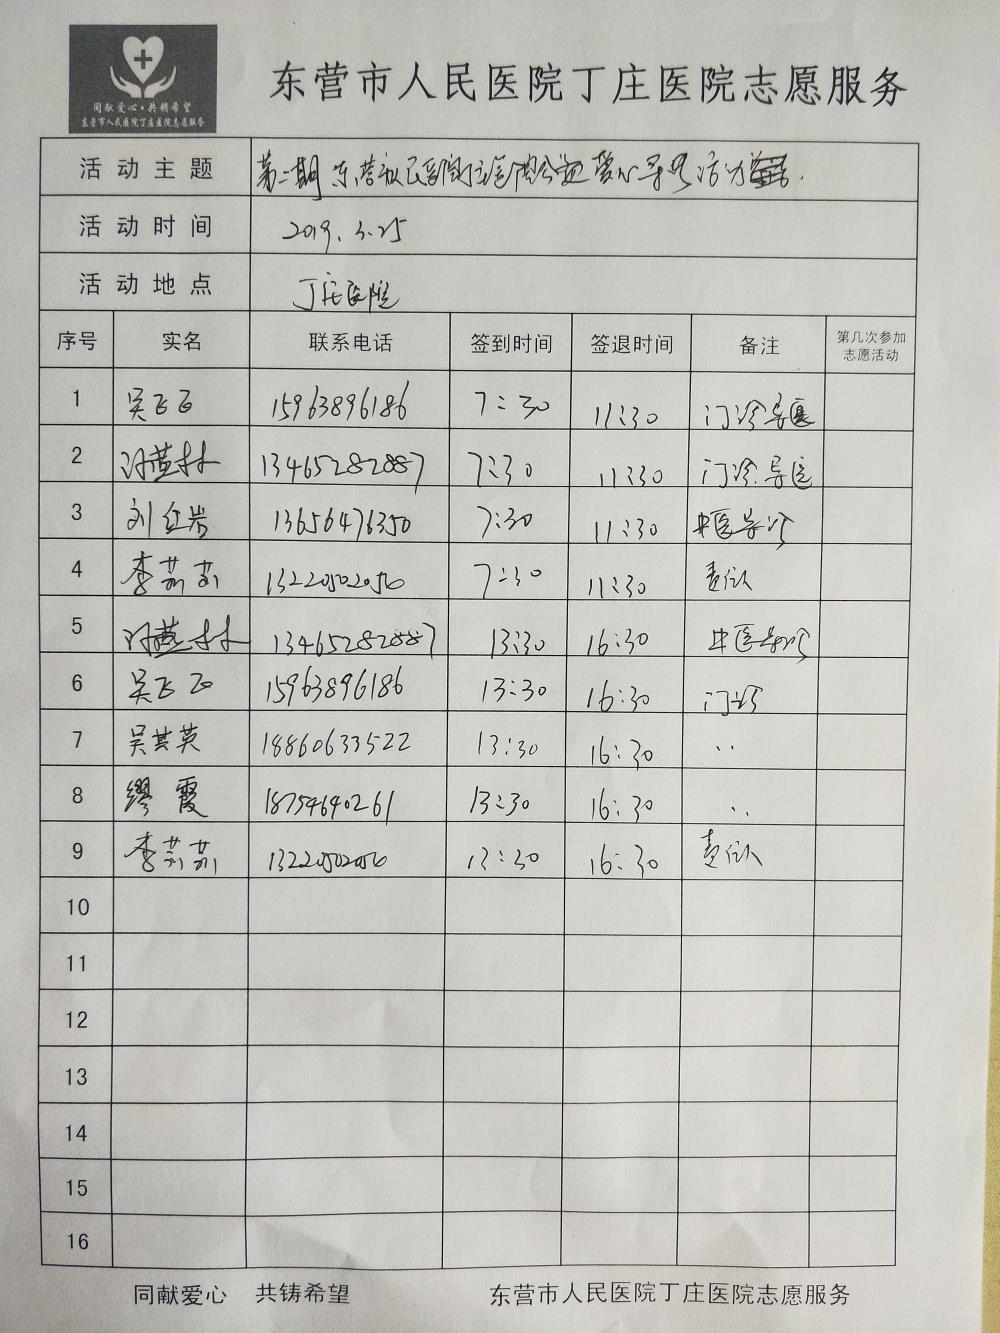 同献爱心·共铸希望
东营市人民医院丁庄医院志愿服务
东营市人民医院丁庄医院志愿服务
活动主题 第二期东营市人民医院丁庄医院公益爱心导医活动
活动时间 2019.3.25
活动地点 丁庄医院
序号 实名 联系电话 签到时间 签退时间 备注 第几次参加志愿活动
1 吴飞飞 15963896186 7:30 11:30 门诊导医
2 13465282887 7:30 11:30 门诊导医
3 刘红岩 13656476350 7:30 11:30 中医导诊
4 李茹茹 13220502056 7:30 11:30 责任人
5 13465282887 13:30 16:30 中医导诊
6 吴飞飞 15963896186 13:30 16:30 门诊
7 吴其英 18860633522 13:30 16:30 ··
8 缪霞 18754640261 13:30 16:30 ··
9 李茹茹 13220502056 13:30 16:30 责任人
10
11
12
13
14
15
16
同献爱心 共铸希望 东营市人民医院丁庄医院志愿服务